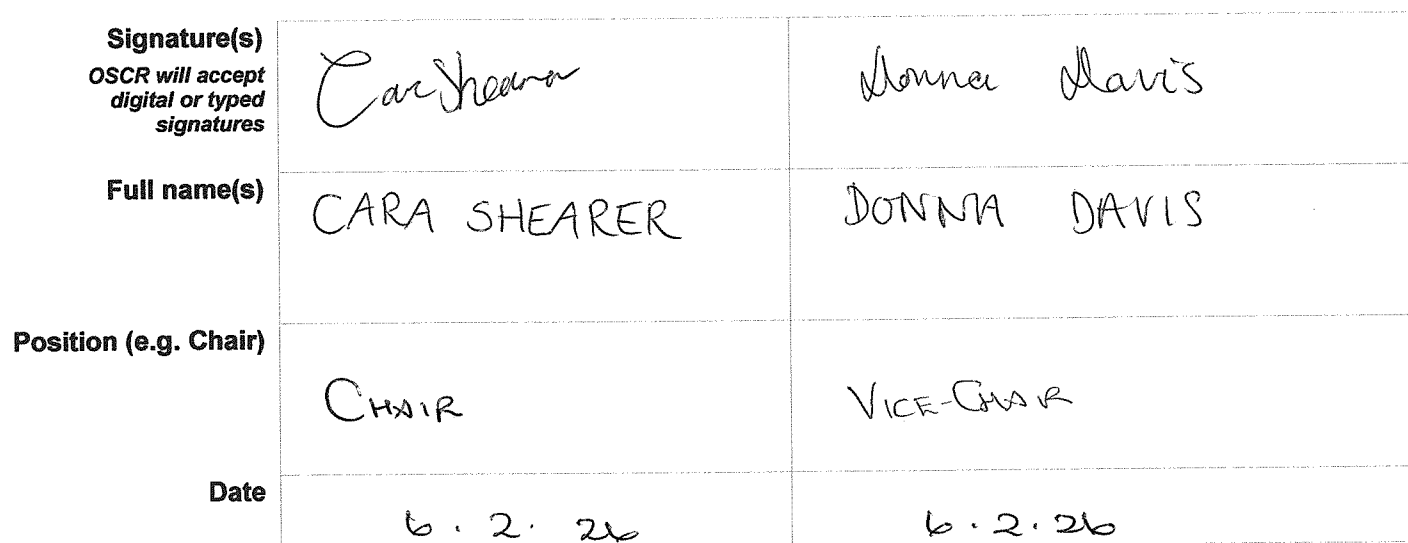 Signature(s)
OSCR will accept
digital or typed
signatures
Cara Shearer
Donna Davis
Full name(s)
CARA SHEARER
DONNA DAVIS
Position (e.g. Chair)
CHAIR
VICE-CHAIR
Date
6 . 2 . 26
6 . 2 . 26